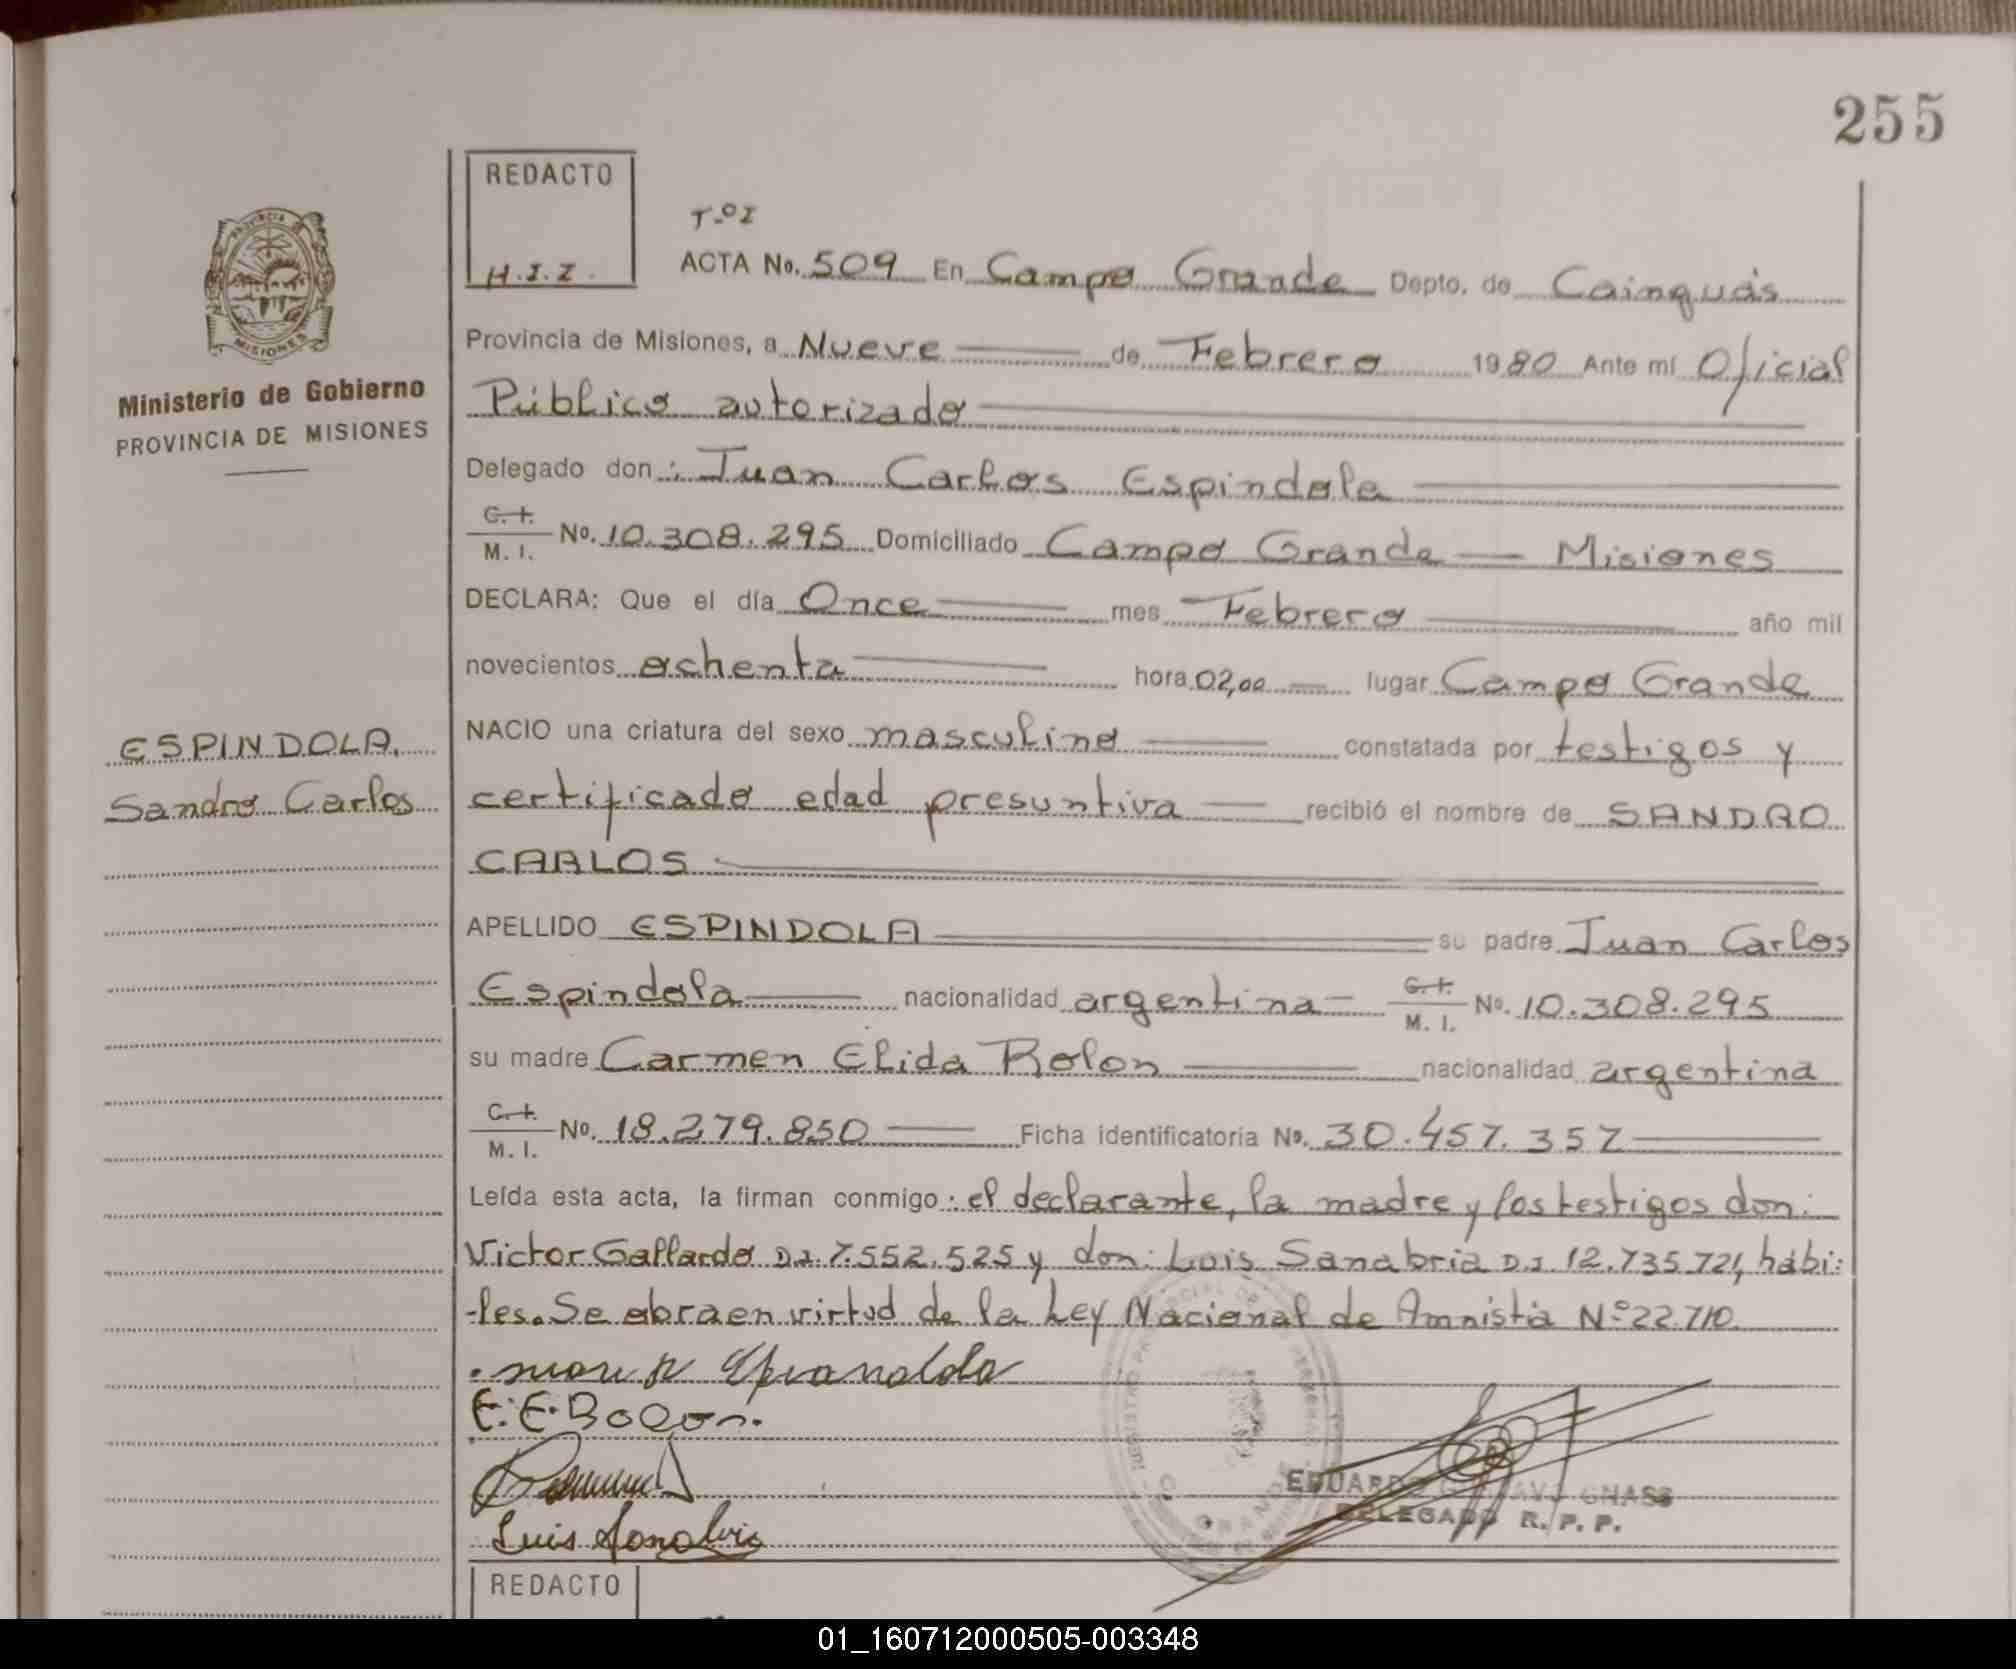 255
REDACTO
H.I.Z.
T-º I
ACTA No. 509 En Campo Grande Depto. de Cainguás
PROVINCIA
MISIONES
Provincia de Misiones, a Nueve de Febrero 1980 Ante mi Oficial
Ministerio de Gobierno
PROVINCIA DE MISIONES
Público autorizado
Delegado don: Juan Carlos Espindola
C. I.
M. I. No. 10.308.295 Domiciliado Campo Grande — Misiones
DECLARA: Que el día Once mes Febrero año mil
novecientos ochenta hora 02,00 lugar Campo Grande
ESPINDOLA,
Sandro Carlos
NACIO una criatura del sexo masculino constatada por testigos y
certificado edad presuntiva recibió el nombre de SANDRO
CARLOS
APELLIDO ESPINDOLA su padre Juan Carlos
Espindola nacionalidad argentina — C. I.
M. I. No. 10.308.295
su madre Carmen Elida Rolon nacionalidad argentina
C. I.
M. I. No. 18.279.850 Ficha identificatoria No. 30.457.357
Leída esta acta, la firman conmigo: el declarante, la madre y los testigos don:
Victor Gallardo D.I. 7.552.525 y don: Luis Sanabria D.I. 12.735.721, hábi:
-les. Se abra en virtud de la Ley Nacional de Amnistia Nº 22.710.
E. E. Rolon.
Luis Sanabria
EDUARDO GUSTAVO GNASS
DELEGADO R. P. P.
REDACTO
01_160712000505-003348